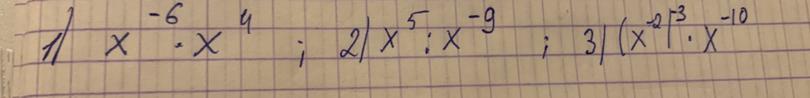 1) x⁻⁶ · x⁴ ; 2) x⁵ : x⁻⁹ ; 3) (x⁻²)⁻³ · x⁻¹⁰